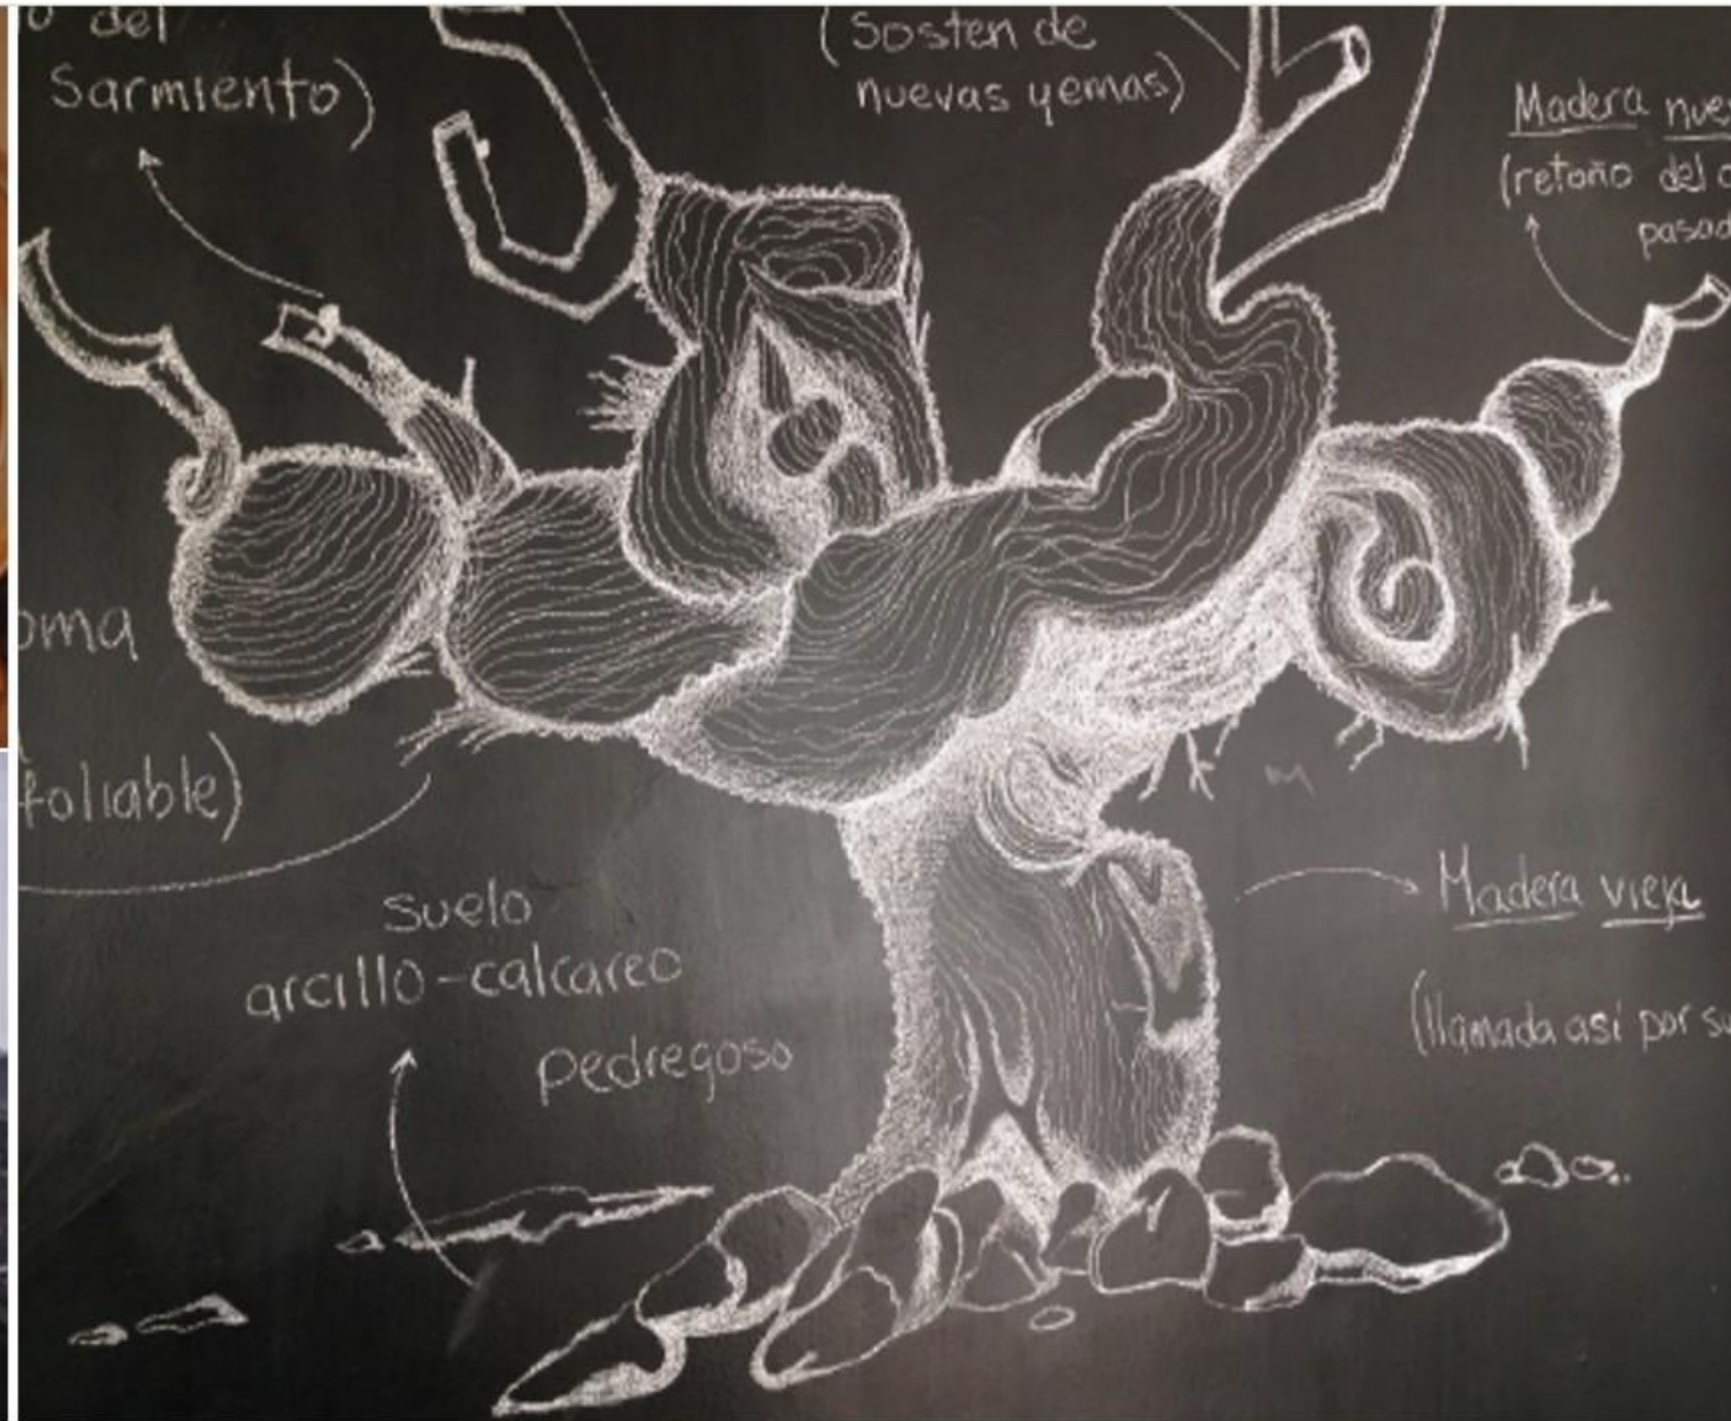 del
Sarmiento)
(Sosten de
nuevas yemas)
Madera
(retoño del
foliable)
suelo
arcillo-calcareo
pedregoso
Madera vieja
(llamada así por su